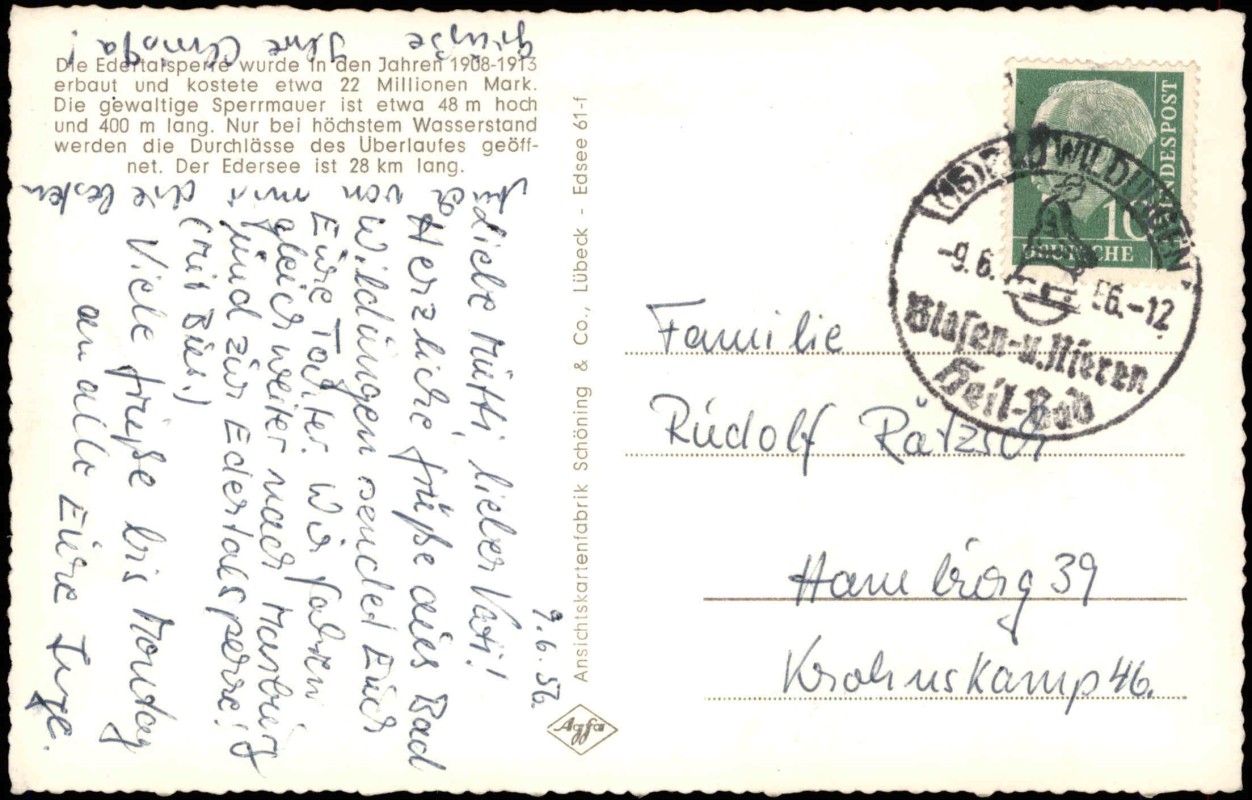 Die Edertalsperre wurde in den Jahren 1908-1913
erbaut und kostete etwa 22 Millionen Mark.
Die gewaltige Sperrmauer ist etwa 48 m hoch
und 400 m lang. Nur bei höchstem Wasserstand
werden die Durchlässe des Überlaufes geöff-
net. Der Edersee ist 28 km lang.
9.6.56.
Liebe Mutti, lieber Vati!
Herzliche Grüße aus Bad
Wildungen sendet Euch
Eure Tochter. Wir fahren
gleich weiter nach Marburg
und zur Edertalsperre!
(mit Bus.)
Viele Grüße bis Montag
an alle Eure Inge.
von mir die besten
Grüße Ihre
Ansichtskartenfabrik Schöning & Co., Lübeck - Edsee 61-f
Agfa
DEUTSCHE
BUNDESPOST
10
(16) BAD WILDUNGEN
-9.6.56.-12
Blasen-u.Nieren
Heil-Bad
Familie
Rudolf Rätzsch
Hamburg 39
Krohnskamp 46.